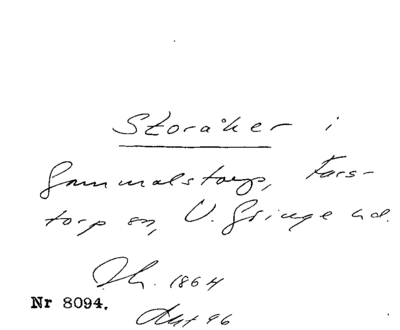 Storåker i
Gammalstorp, Fars-
torp sn, V. Göinge hd.
Th. 1864
Nr 8094.